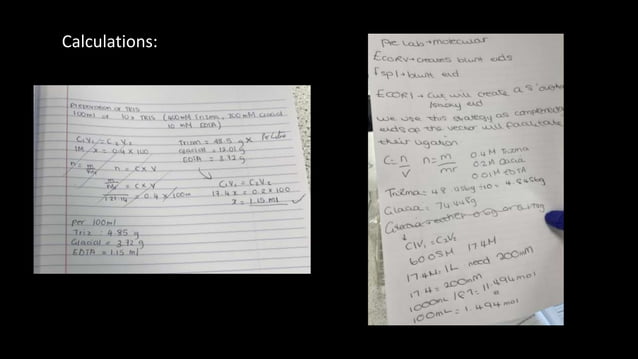 Calculations:
Preparation of TRIS
100ml of 10x TRIS (400mM Trizma, 200mM Glacial
10 mM EDTA)
C1V1 = C2V2
1M x = 0.4 x 100
n = m/Mr n = C x V
m/Mr = C x V
/121.14 = 0.4 x 100m
Trizma = 48.5 g x Per Litre
Glacial = 12.01g
EDTA = 3.72 g
C1V1 = C2V2
17.4 x = 0.2 x 100
x = 1.15 ml ✓
Per 100ml
Triz : 4.85 g
Glacial = 3.72 g
EDTA = 1.15 ml
Pre Lab → molecular
EcoRV → creates blunt ends
SspI → blunt end
ECORI → Cut will create a 5'
/sticky end
we use this strategy as
ends of the vector will facilitate
their ligation
C = n/V n = m/mr 0.4M Trizma
0.2M Glacial
0.01M EDTA
Trizma = 48.4 ÷10 = 4.845kg
Glacial = 74.448g
C1V1 = C2V2
60.05M 17.4M
17.4M = 1L need 200mM
17.4 = 200mM
1000mL = 11.494mol
100mL = 1.494mol